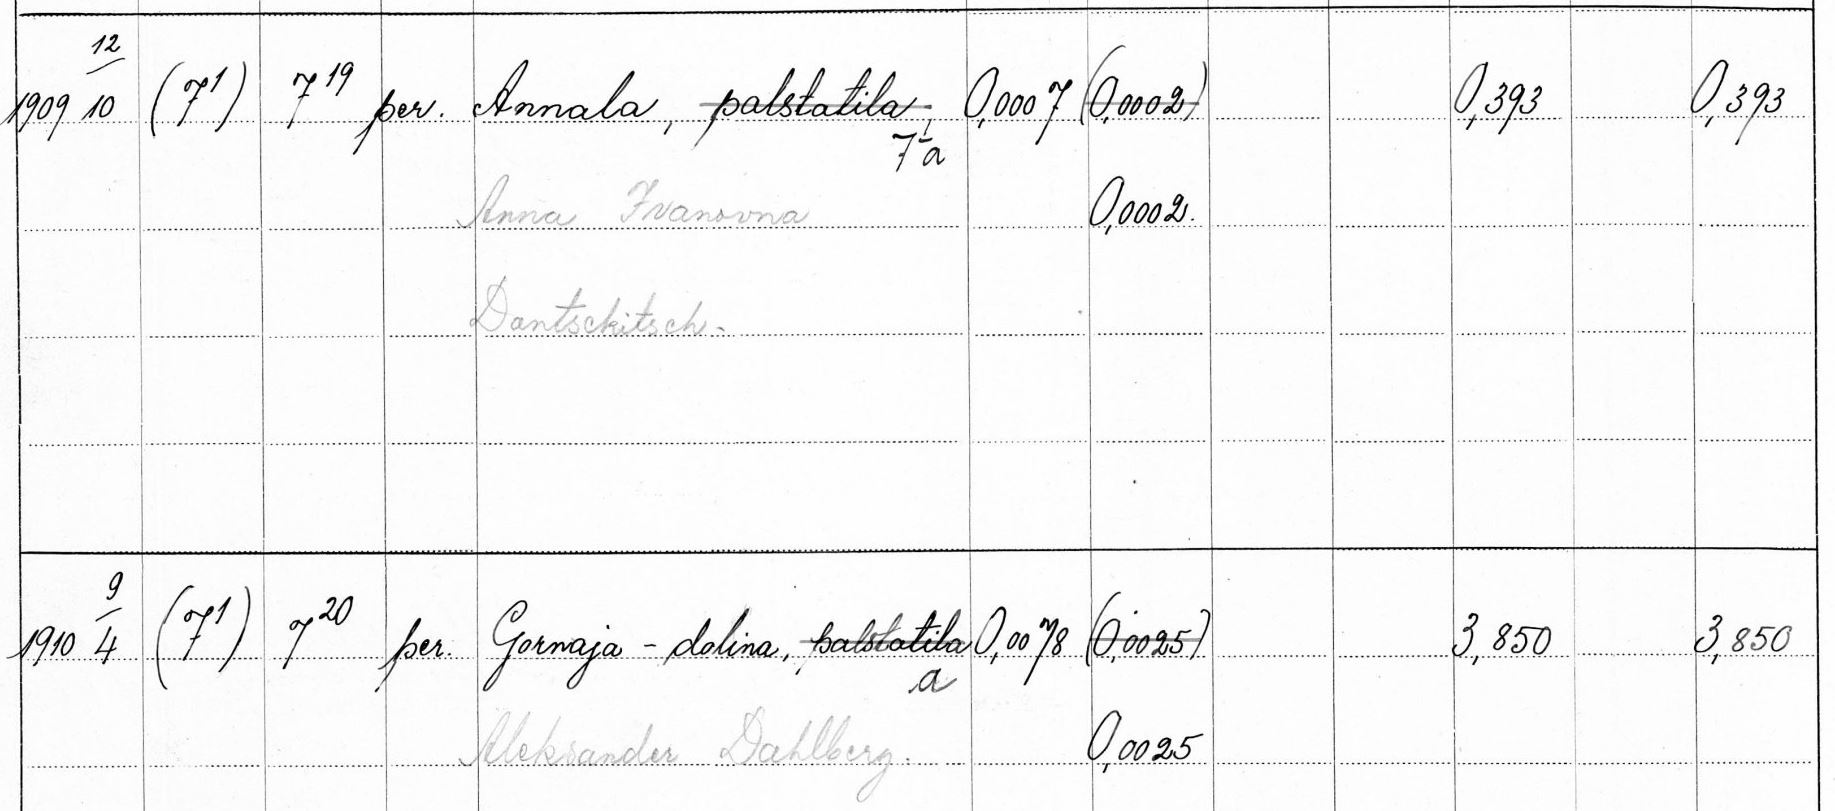 12
1909 10 (7¹) 7¹⁹ per. Annala, palstatila, 0,0007 (0,0002) 0,393 0,393
7 a
Anna Ivanovna 0,0002.
Dantschitsch.
9
1910 4 (7¹) 7²⁰ per. Gornaja - dolina, palstatila 0,0078 (0,0025) 3,850 3,850
a
Aleksander Dahlberg. 0,0025